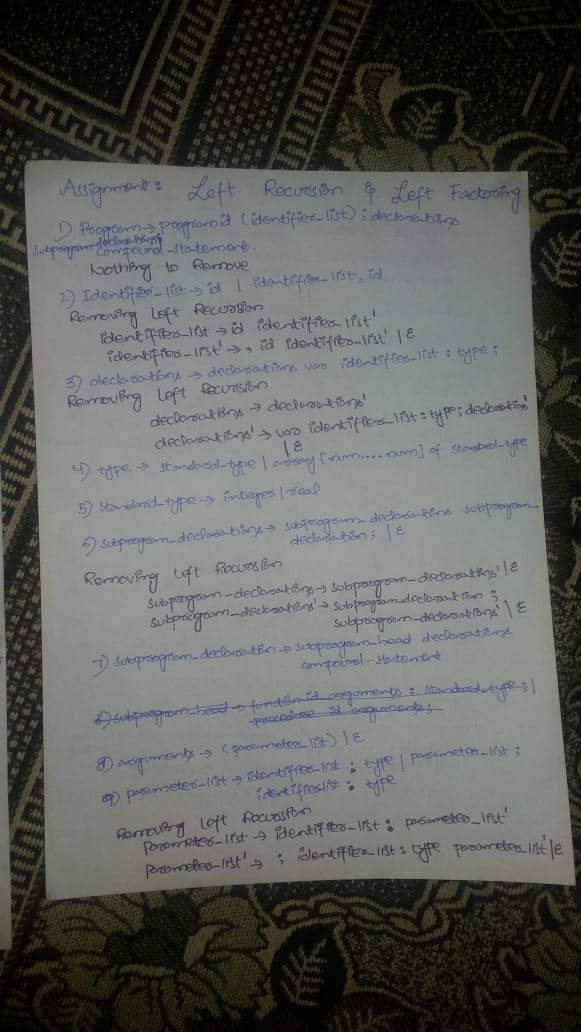 Assignment: Left Recursion & Left Factoring
1) Program → program id (identifier_list); declarations
subprogram declarations
compound-statement.
Nothing to Remove
2) Identifier-list → id | identifier-list, id
Removing Left Recursion
identifier_list → id identifier_list'
identifier_list' → , id identifier_list' | ε
3) declarations → declarations var identifier_list : type ;
Removing Left Recursion
declarations → declarations'
declarations' → var identifier_list : type ; declarations'
| ε
4) type → standard-type | array [num....num] of standard-type
5) standard-type → integer | real
6) subprogram_declarations → subprogram_declarations subprogram_
declaration ; | ε
Removing Left Recursion
subprogram-declarations → subprogram_declarations' | ε
subprogram_declarations' → subprogram_declaration ;
subprogram_declarations' | ε
7) subprogram_declaration → subprogram_head declarations
compound-statement
8) subprogram_head → function id arguments : standard_type ; |
procedure id arguments ;
8) arguments → (parameter_list) | ε
9) parameter-list → identifier-list : type | parameter-list ;
identifierlist : type
Removing Left Recursion
Parameter-list → identifier-list : parameter_list'
parameter-list' → ; identifier_list : type parameter_list' | ε